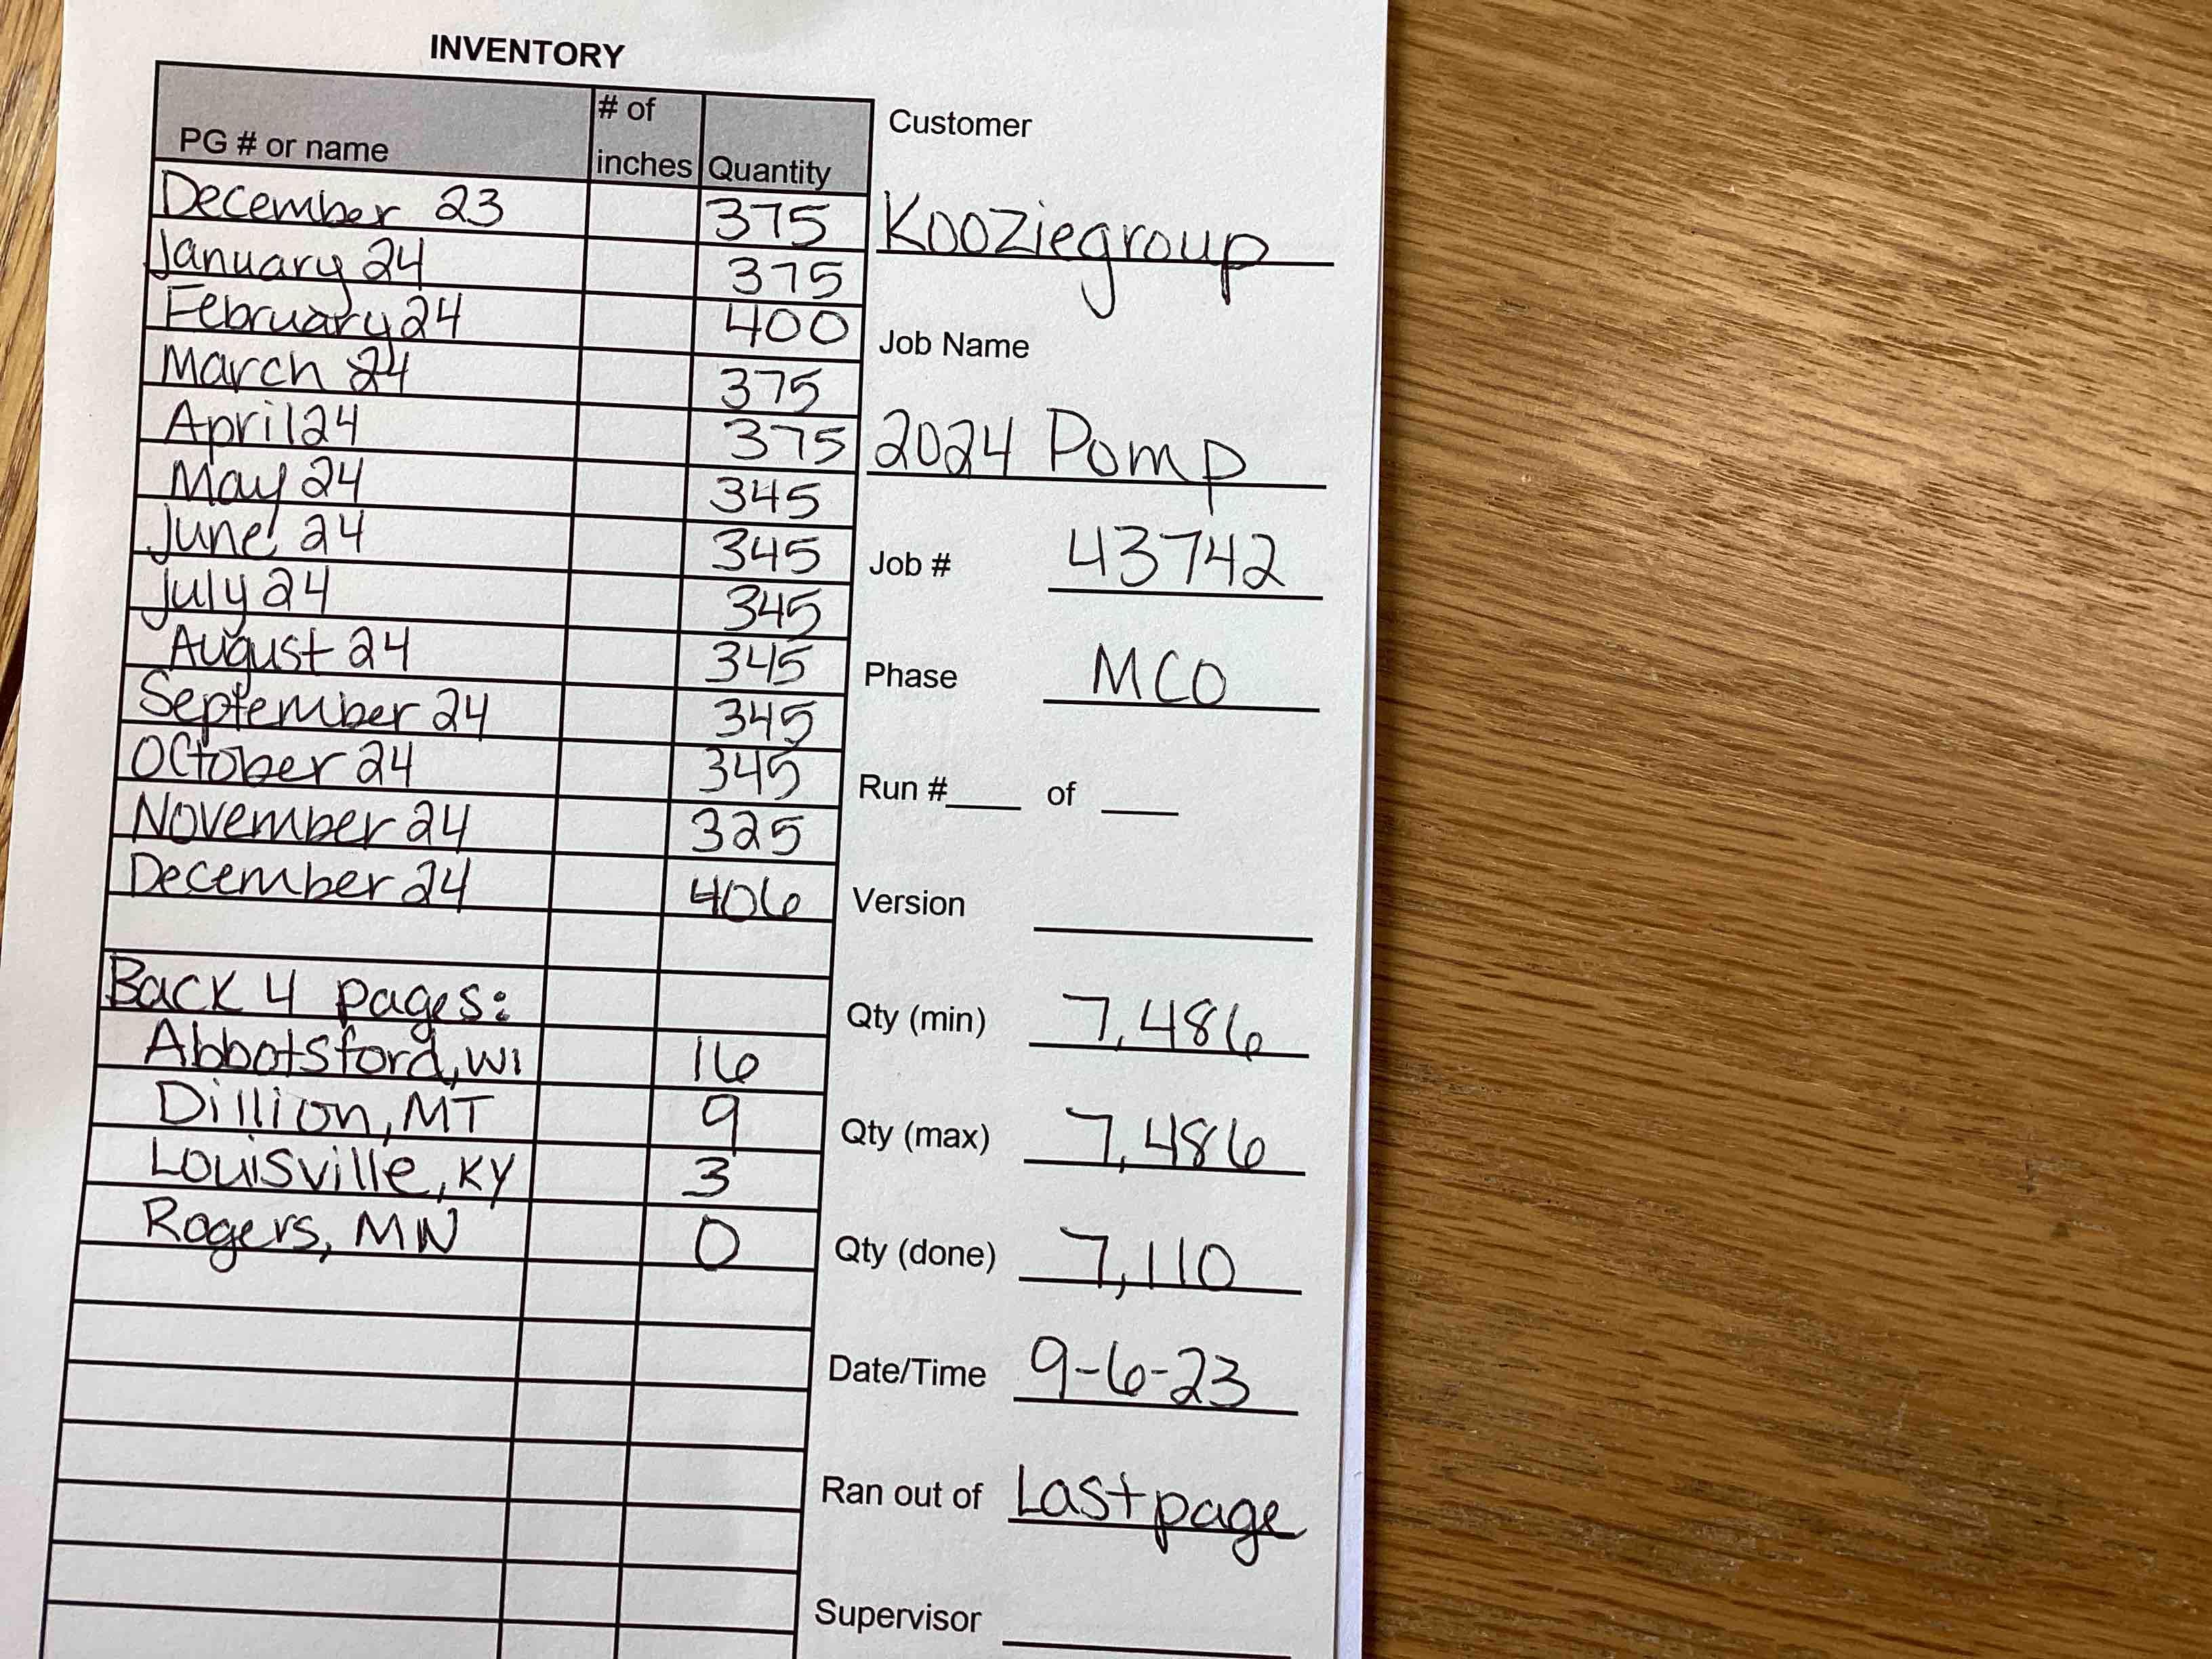 INVENTORY
PG # or name # of inches Quantity
December 23 375
January 24 375
February 24 400
March 24 375
April 24 375
May 24 345
June 24 345
July 24 345
August 24 345
September 24 345
October 24 345
November 24 325
December 24 406
Back 4 pages:
Abbotsford, WI 16
Dillion, MT 9
Louisville, KY 3
Rogers, MN 0
Customer
Kooziegroup
Job Name
2024 Pomp
Job # 43742
Phase MCO
Run #____ of ____
Version
Qty (min) 7,486
Qty (max) 7,486
Qty (done) 7,110
Date/Time 9-6-23
Ran out of Last page
Supervisor